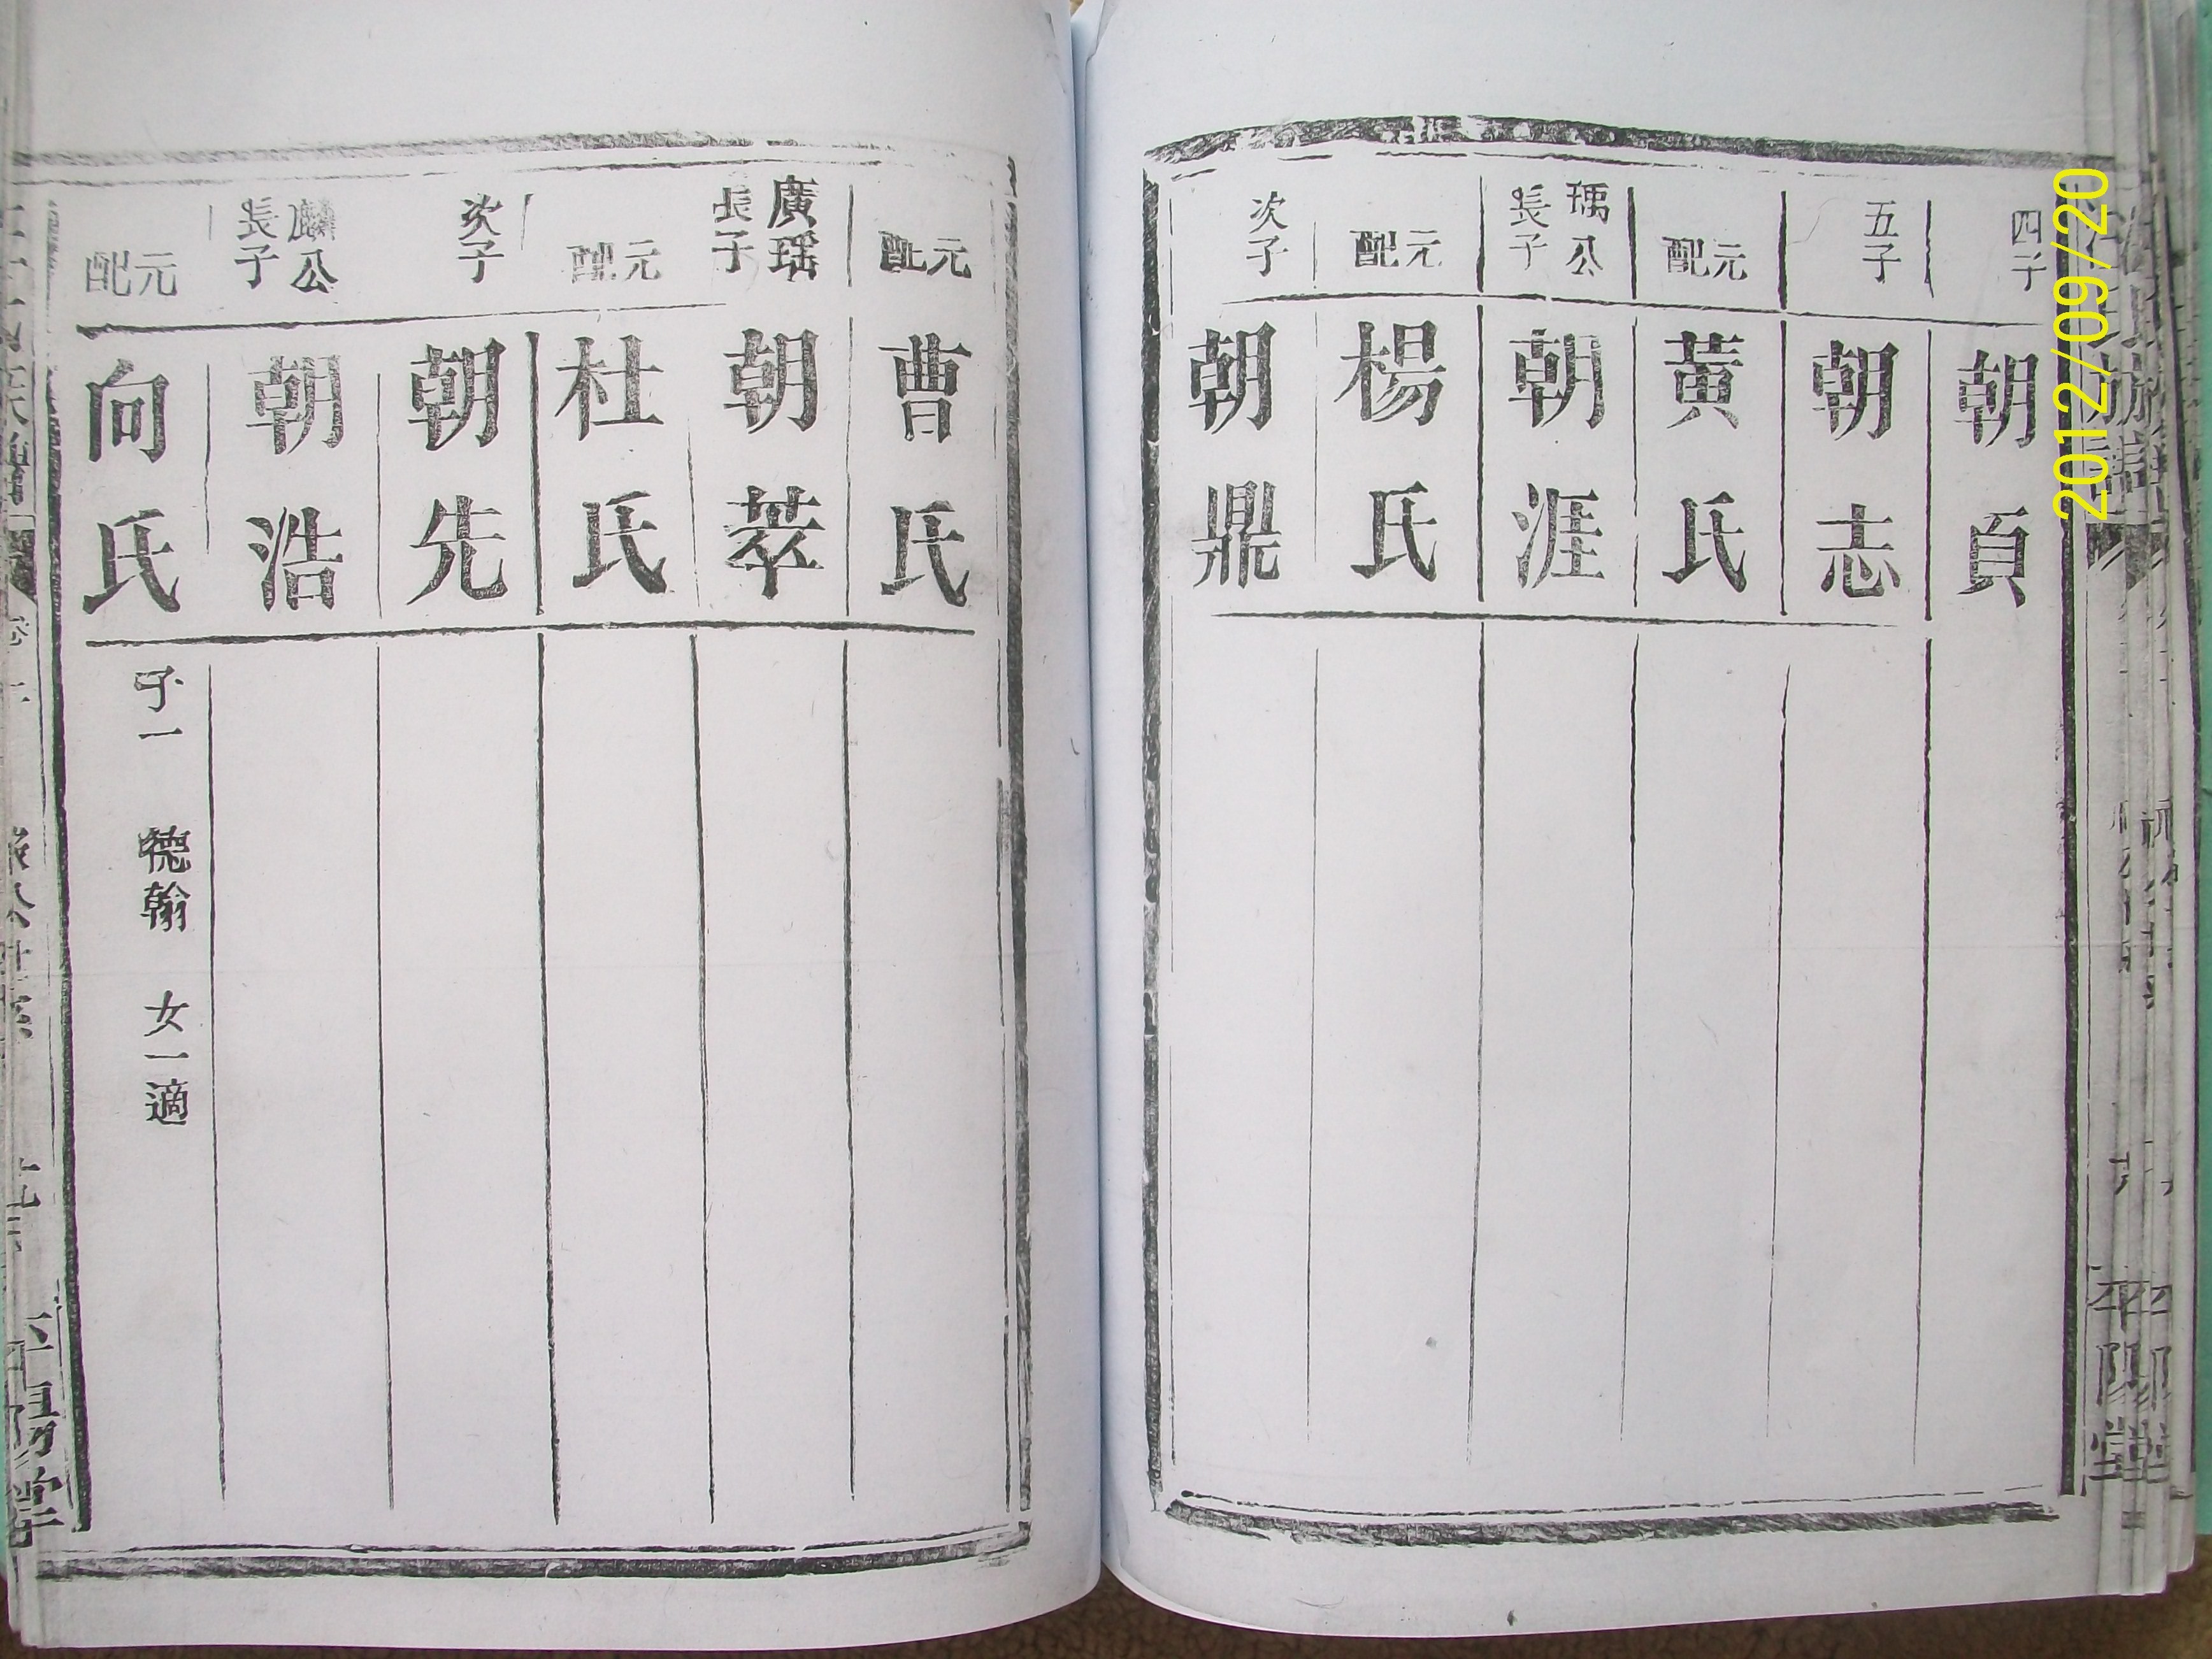 四子 朝頁
五子 朝志
元配 黃氏
瑀公長子 朝涯
元配 楊氏
次子 朝鼎
元配 曹氏
廣瑤長子 朝萃
元配 杜氏
次子 朝先
麟公長子 朝浩
元配 向氏 子一 德翰 女一適
平陽堂
2012/09/20